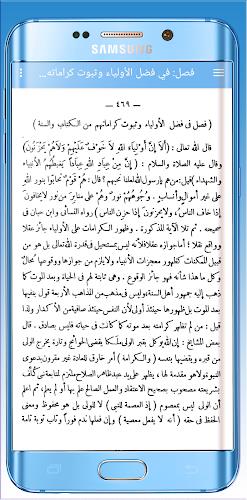 SAMSUNG
فصل: في فضل الأولياء وثبوت كراماته...
— ٤٦٩ —
( فصل فى فضل الأولياء وثبوت كراماتهم من الكتاب والسنة )
قال الله تعالى : ( ألا إن أولياء الله لا خوف عليهم ولا هم يحزنون )
وقال عليه الصلاة والسلام : ( إن من عباد الله عبادا يغبطهم الأنبياء
والشهداء ) قيل : من هم يا رسول الله لعلنا نحبهم ؟ قال : هم قوم تحابوا بنور الله
على غير أموال وأنساب ، وجوههم نور وهم على منابر من نور لا يخافون
إذا خاف الناس ، ولا يحزنون إذا حزن الناس ) رواه النسائى وابن حبان فى
صحيحه . ثم تلا الآية المذكورة . وظهور الكرامات على الأولياء جائز عقلا
وواقع نقلا ؛ أما جوازه عقلا فلأنه ليس بمستحيل فى قدرة الله تعالى بل هو من
قبيل الممكنات كظهور معجزات الأنبياء ولا يلزم من جوازها ووقوعها محال
وكل ما هذا شأنه فهو جائز الوقوع . وهى ثابتة لهم فى الحياة وبعد الموت كما
ذهب إليه جمهور أهل السنة وليس فى مذهب من المذاهب الأربعة قول بنفيها
بعد الموت بل ظهورها حينئذ أولى لأن النفس حينئذ صافية من الأكدار ولذا
قيل : من لم تظهر كرامته بعد موته كما كانت فى حياته فليس بصادق . قال
بعض المشايخ : إن الله يوكل بقبر الولى ملكا يقضى الحوائج وتارة يخرج الولى
من قبره ويقضيها بنفسه ( والكرامة ) أمر خارق للعادة غير مقرون بدعوى
النبوة ولا هو مقدمة لها ، يظهر على يد عبد ظاهر الصلاح ملتزم لمتابعة نبى كلف
بشريعته مصحوب بصحيح الاعتقاد والعمل الصالح علم بها أو لم يعلم ، ثم اعلم
أن الولى ليس بمعصوم ( إذ العصمة للنبى ) لا للولى بل هو محفوظ ومعنى
الحفظ فى حقه ( أنه لا يفعل معصية ) وإن فعلها ندم فورا وتاب توبة تامة